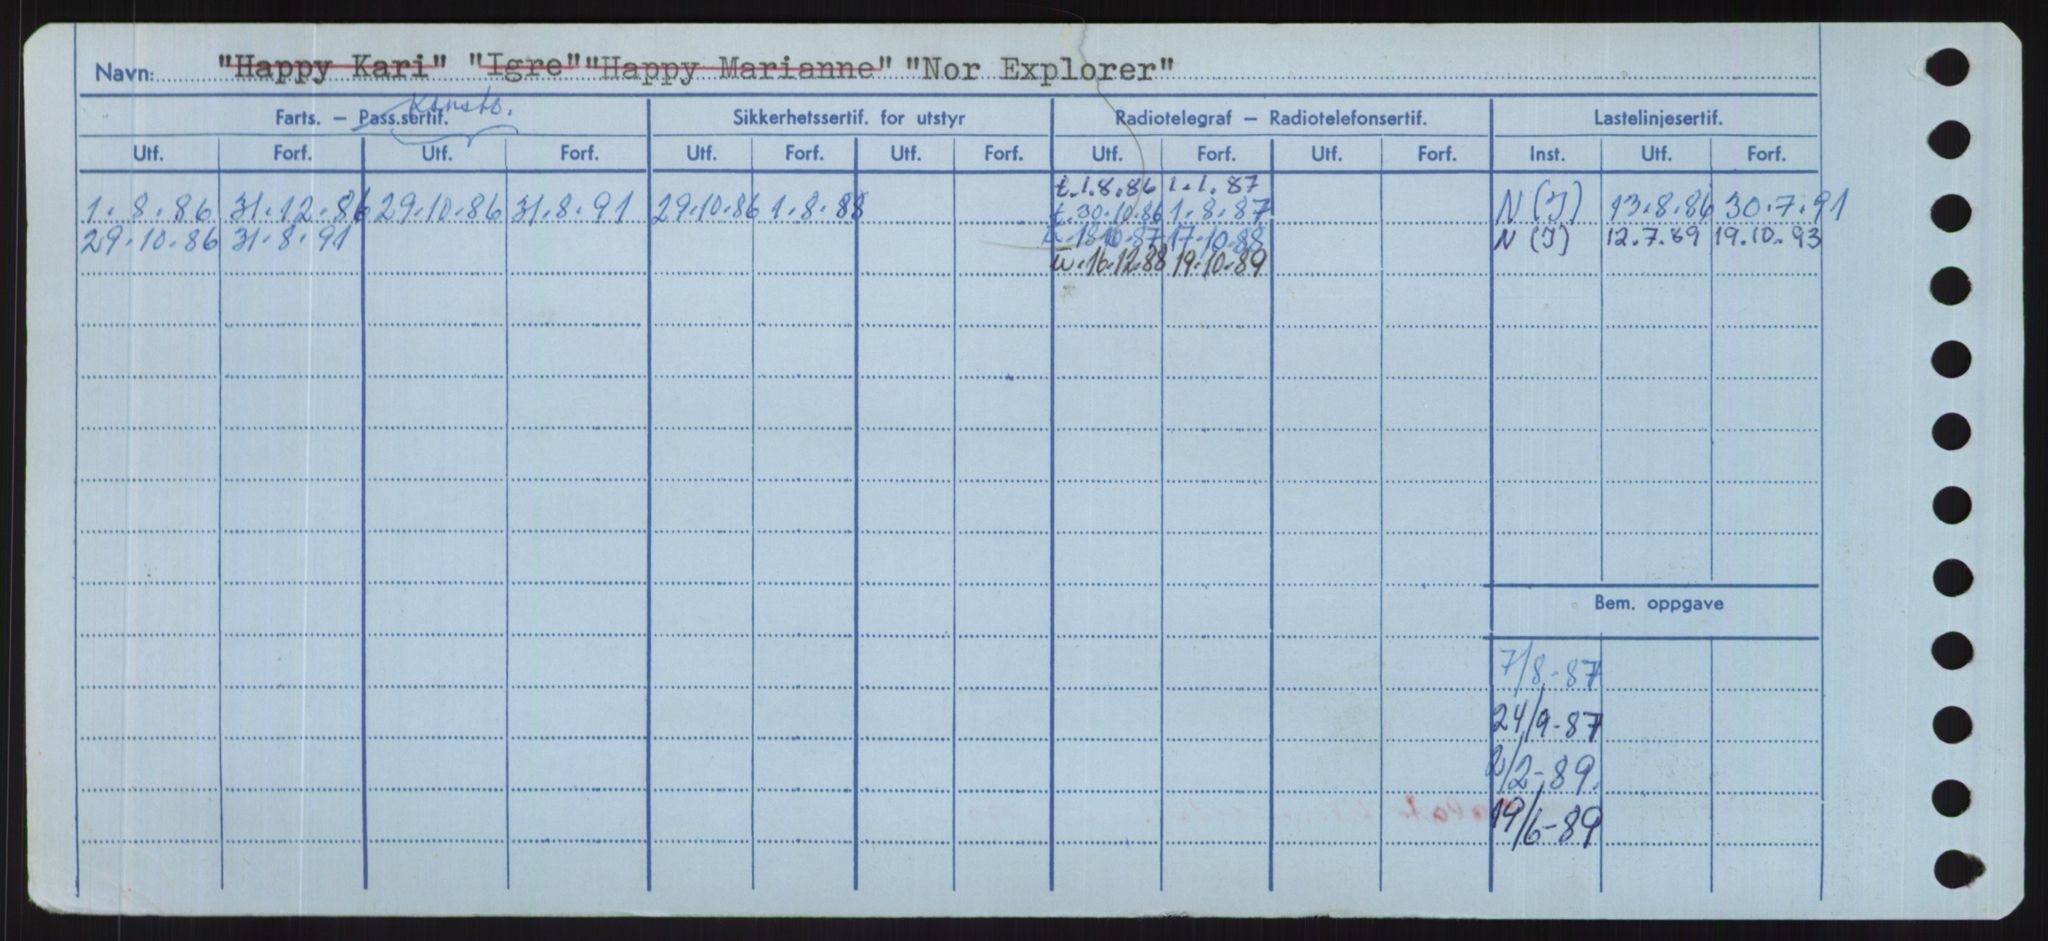 Navn: "Happy Kari" "Igre" "Happy Marianne" "Nor Explorer"
Konstr.
Farts. — Pass.sertif. Sikkerhetssertif. for utstyr Radiotelegraf — Radiotelefonsertif. Lastelinjesertif.
Utf. Forf. Utf. Forf. Utf. Forf. Utf. Forf. Utf. Forf. Utf. Forf. Inst. Utf. Forf.
t. 1.8.86 1.1.87
1.8.86 31.12.86 29.10.86 31.8.91 29.10.86 1.8.88 t. 30.10.86 1.8.87 N (I) 13.8.86 30.7.91
29.10.86 31.8.91 18.10.87 17.10.88 N (I) 12.7.89 19.10.93
u. 16.12.88 19.10.89
Bem. oppgave
7/8-87
24/9-87
2/2-89.
19/6-89